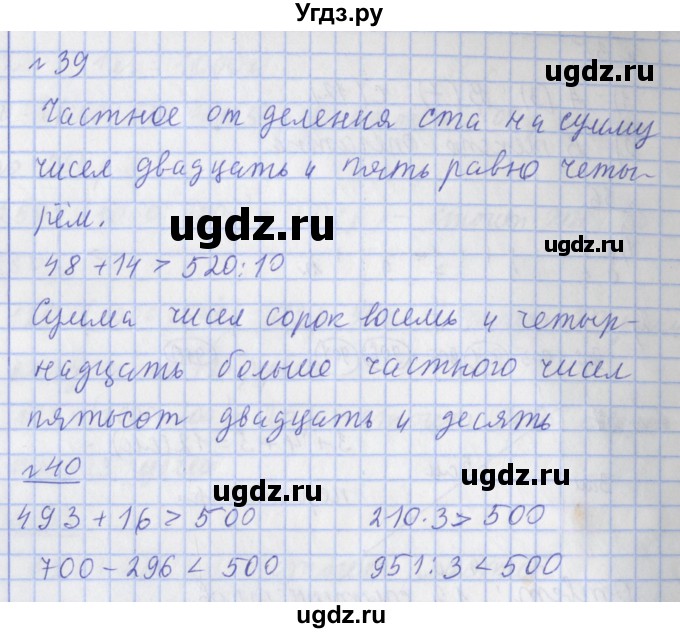 Угдз.ру
№ 39
ugdz.ru
Частное от деления ста на сумму
чисел двадцать и пять равно четы-
рём.
ugdz.ru
ugdz.ru
48 + 14 > 520:10
Сумма чисел сорок восемь и четыр-
надцать больше частного чисел
ugdz.ru
пятьсот двадцать и десять
№ 40
ugdz.ru
493 + 16 > 500 210·3 > 500
700 - 296 < 500 951:3 < 500
ugdz.ru